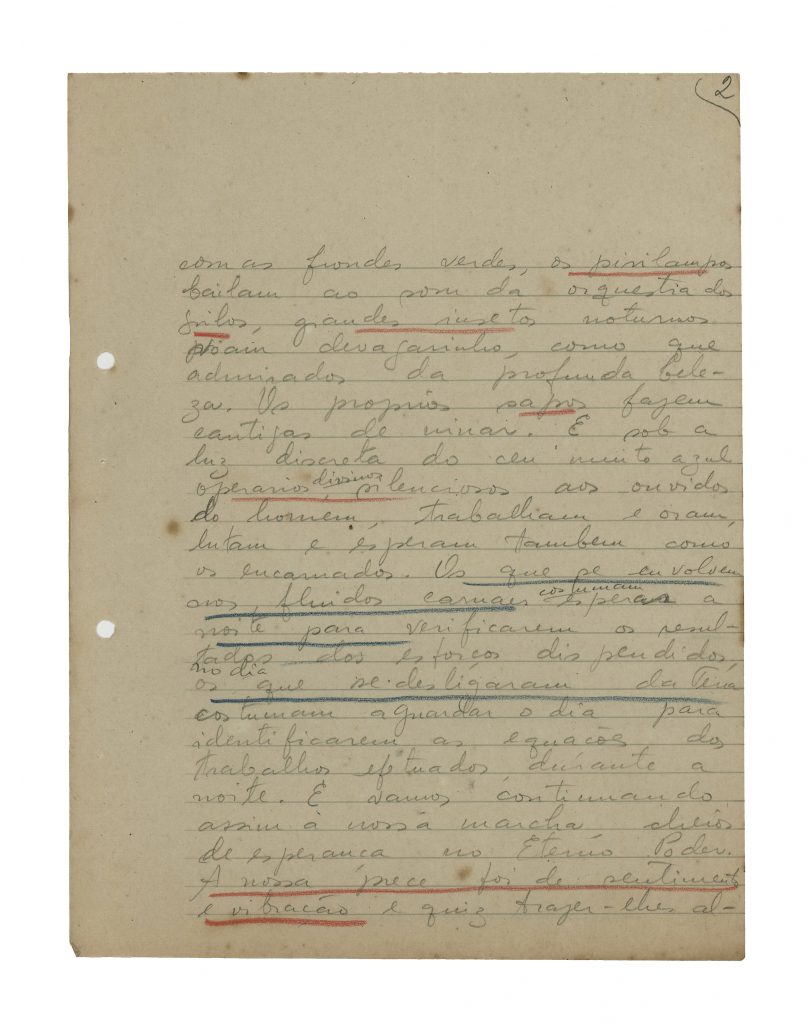 2
com as frondes verdes, os pirilampos
bailam ao som da orquestra dos
grilos, grandes insetos noturnos
piam devagarinho, como que
admirados da profunda bele-
za. Os proprios sapos fazem
cantigas de ninar. E sob a
luz discreta do ceu muito azul
operarios divinos, silenciosos aos ouvidos
do homem, trabalham e oram,
lutam e esperam tambem como
os encarnados. Os que se envolvem
nos fluidos carnaes costumam esperar a
noite para verificarem os resul-
tados dos esforços dispendidos
no dia
os que se desligáram da terra
costumam aguardar o dia para
identificarem as equações dos
trabalhos efetuados durante a
noite. E vamos continuando
assim á nossa marcha cheios
de esperança no Eterno Poder.
A nossa prece foi de sentimento
e vibração e quiz trazer-lhes al-